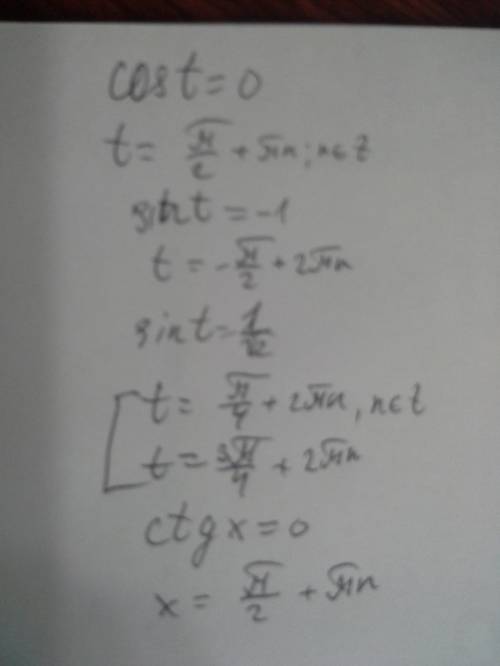 cos t = 0
t = π/2 + πn; n ∈ Z
sin t = -1
t = -π/2 + 2πn
sin t = 1/√2
t = π/4 + 2πn, n ∈ Z
t = 3π/4 + 2πn
ctg x = 0
x = π/2 + πn